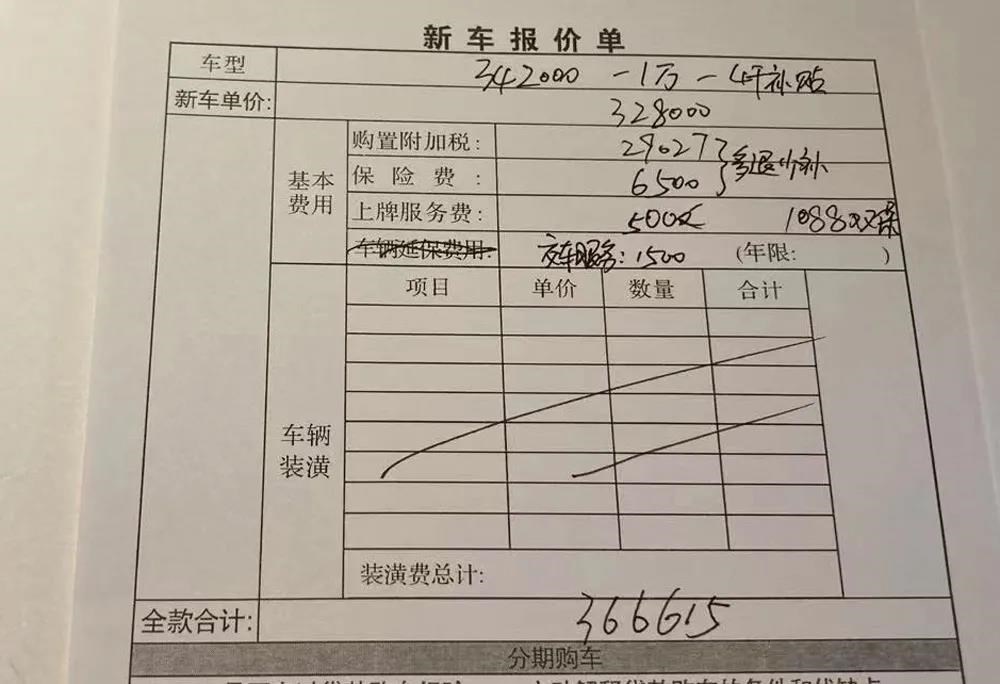 新车报价单
车型 342000 -1万 - 4千补贴
新车单价: 328000
基本费用 购置附加税: 29027 } 多退少补
保险费: 6500
上牌服务费: 500 1088双保
车辆延保费用: 交车服务: 1500 (年限: )
车辆装潢 项目 单价 数量 合计
装潢费总计:
全款合计: 366615
分期购车